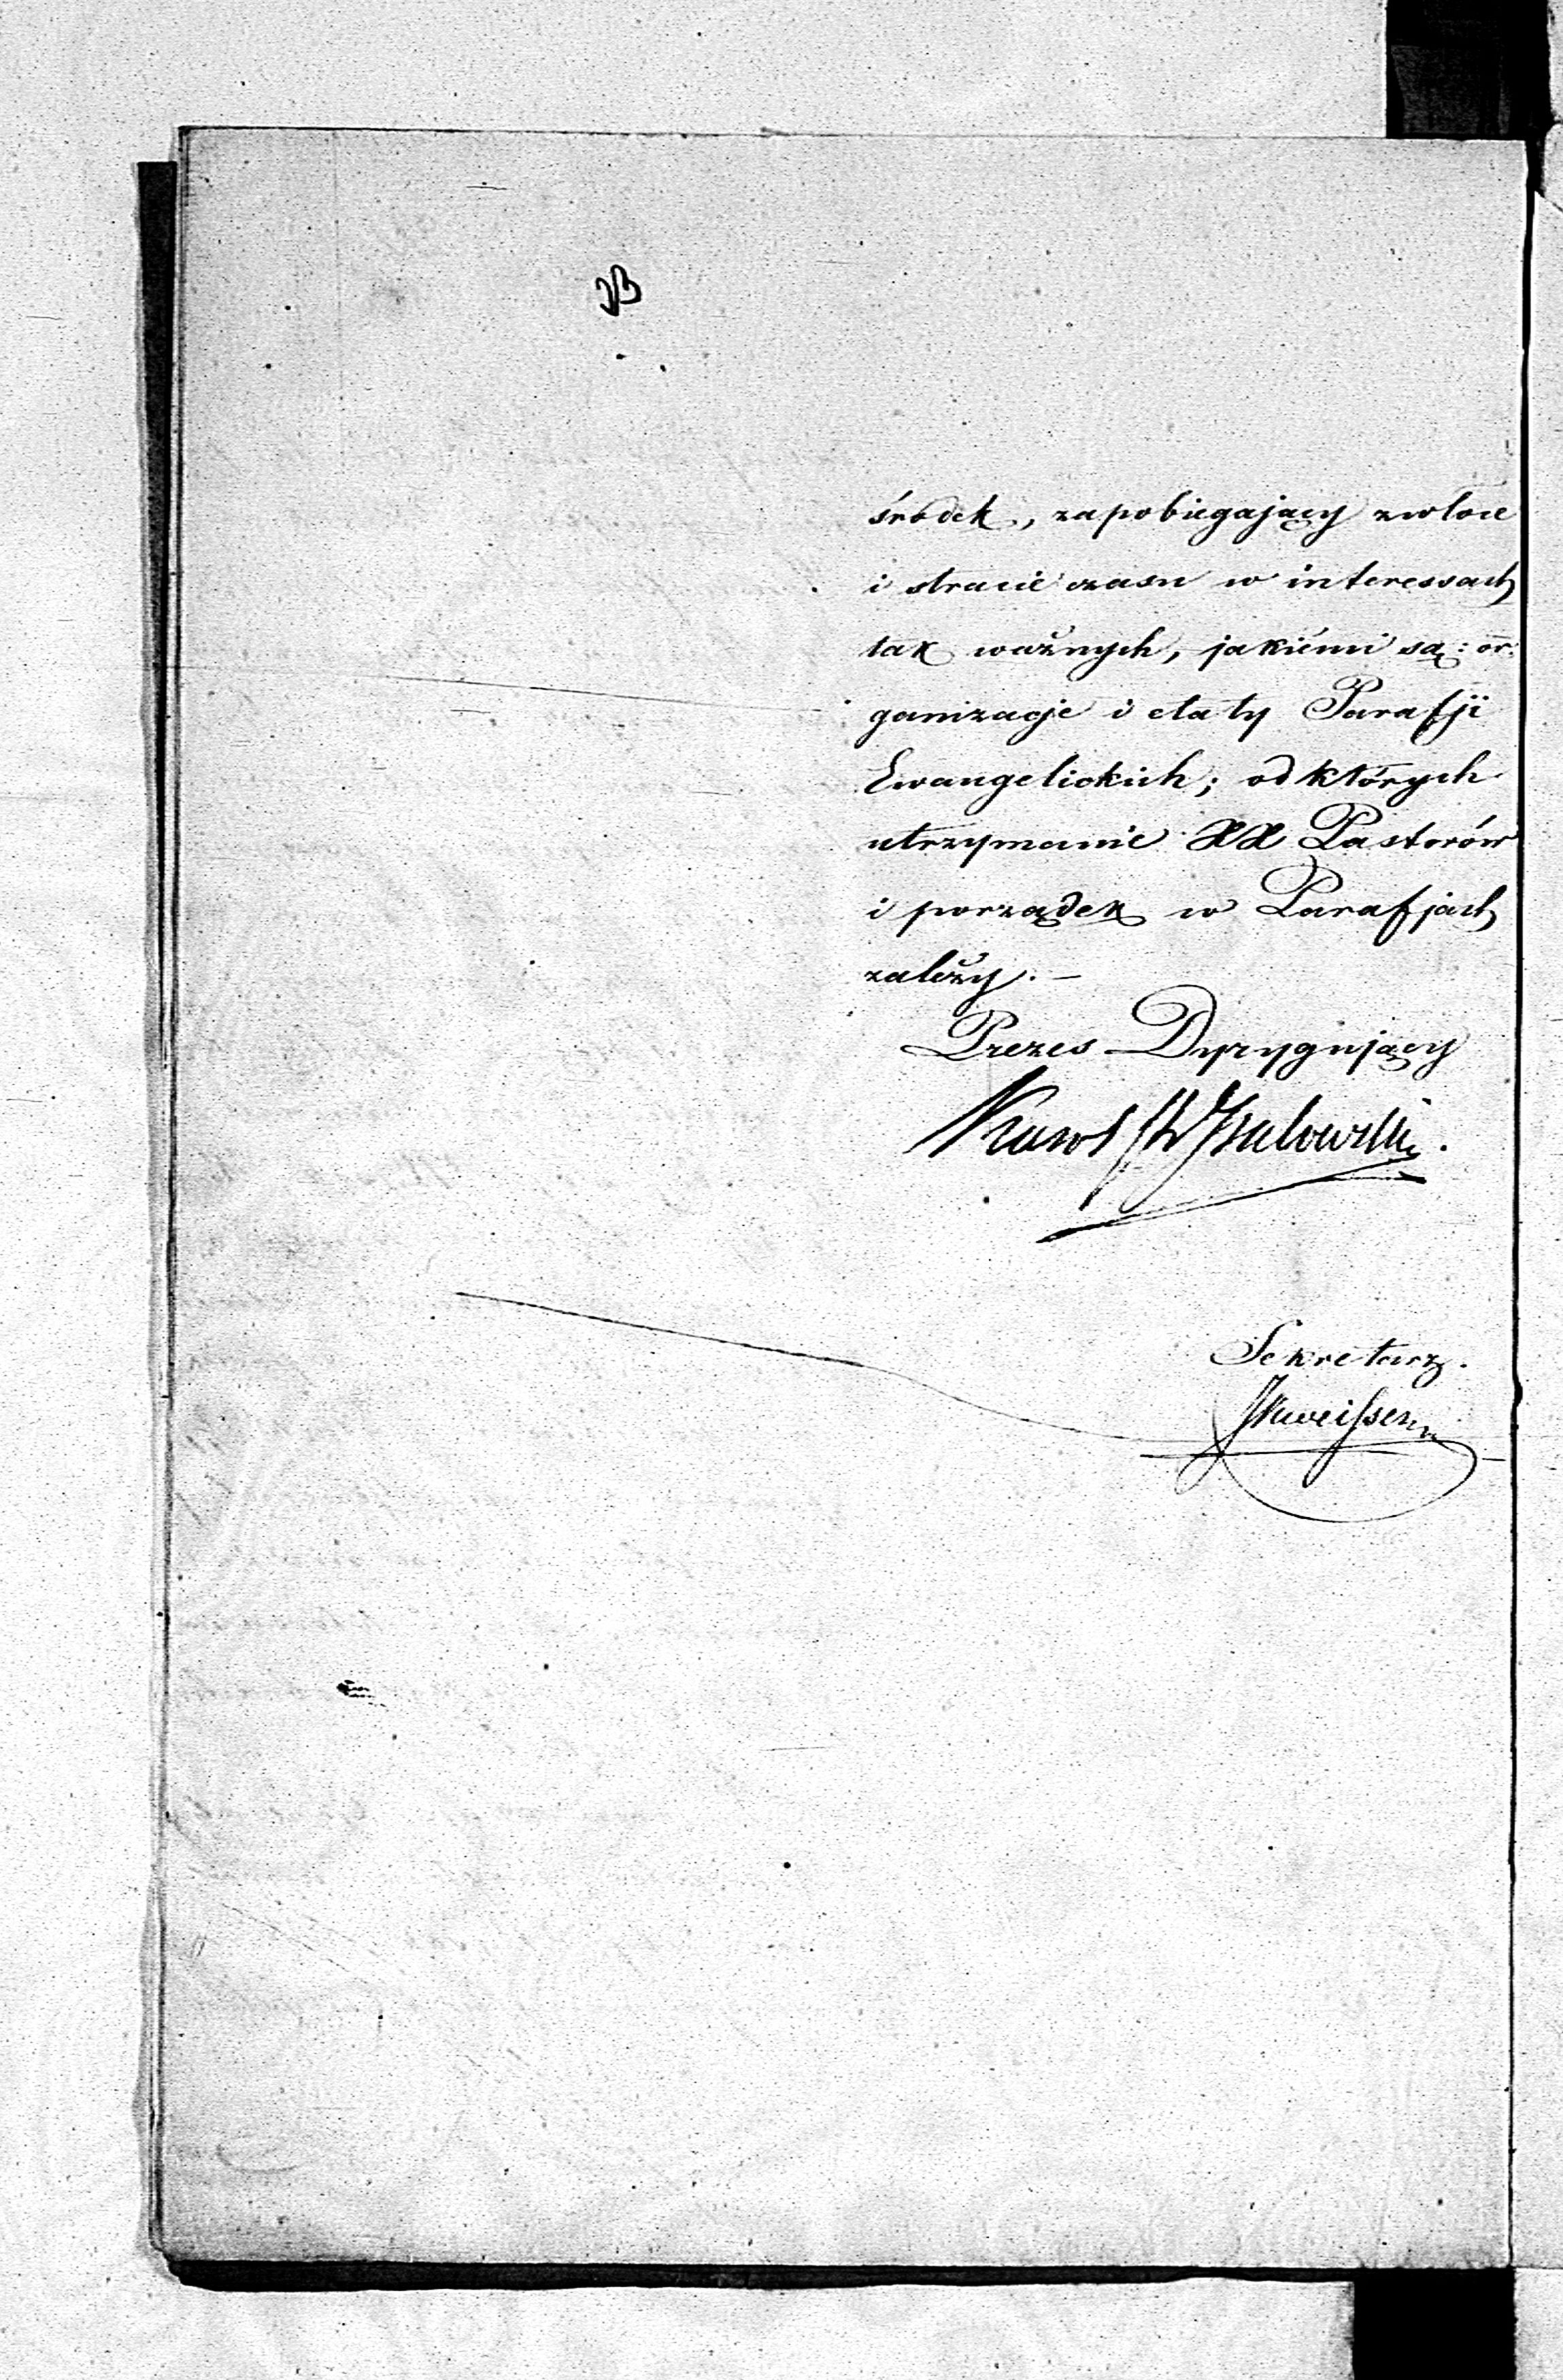 środek, zapobiegający zwłoce
i stracie czasu w interessach
tak ważnych, jakiémi są: or:
ganizacje i etaty Parafji
Ewangelickich; od których
utrzymanie XX Pastorów
i porządek w Parafjach
zależy. —
Prezes Dyrygujący
Sekretarz.